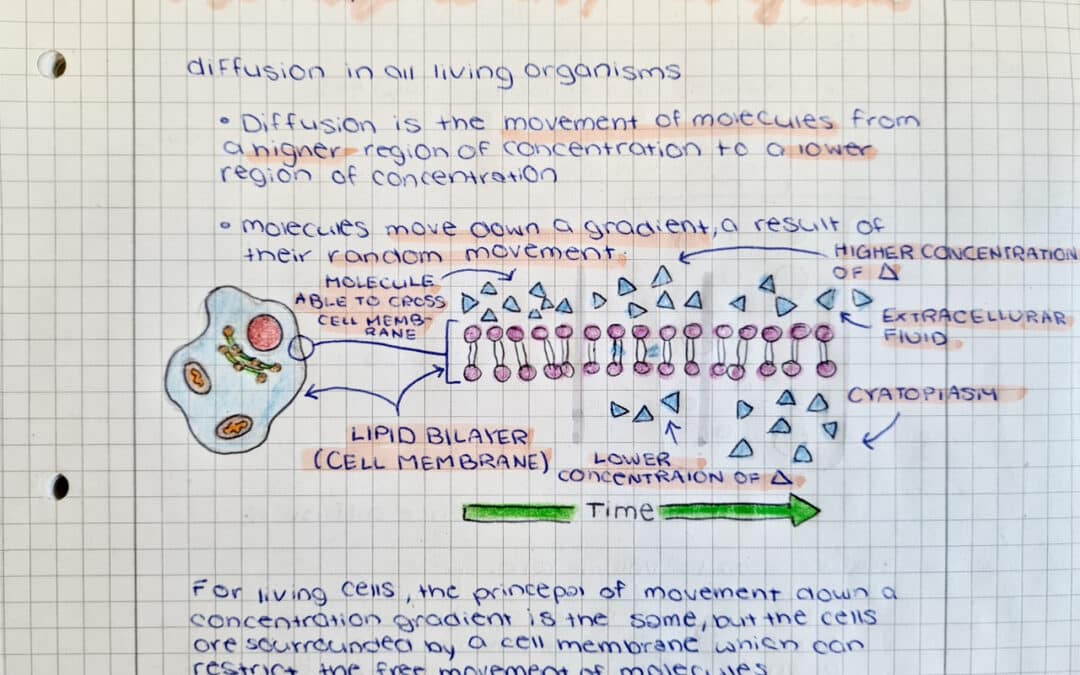 diffusion in all living organisms
• Diffusion is the movement of molecules from
a higher region of concentration to a lower
region of concentration
• molecules move down a gradient, a result of
their random movement.
HIGHER CONCENTRATION
OF Δ
MOLECULE
ABLE TO CROSS
CELL MEMB-
RANE
EXTRACELLURAR
FIUID
CYATOPIASM
LIPID BILAYER
(CELL MEMBRANE)
LOWER
CONCENTRAION OF Δ
Time
For living cells, the princepol of movement down a
concentration gradient is the same, but the cells
are sourrounded by a cell membrane which can
restrict the free movement of molecules